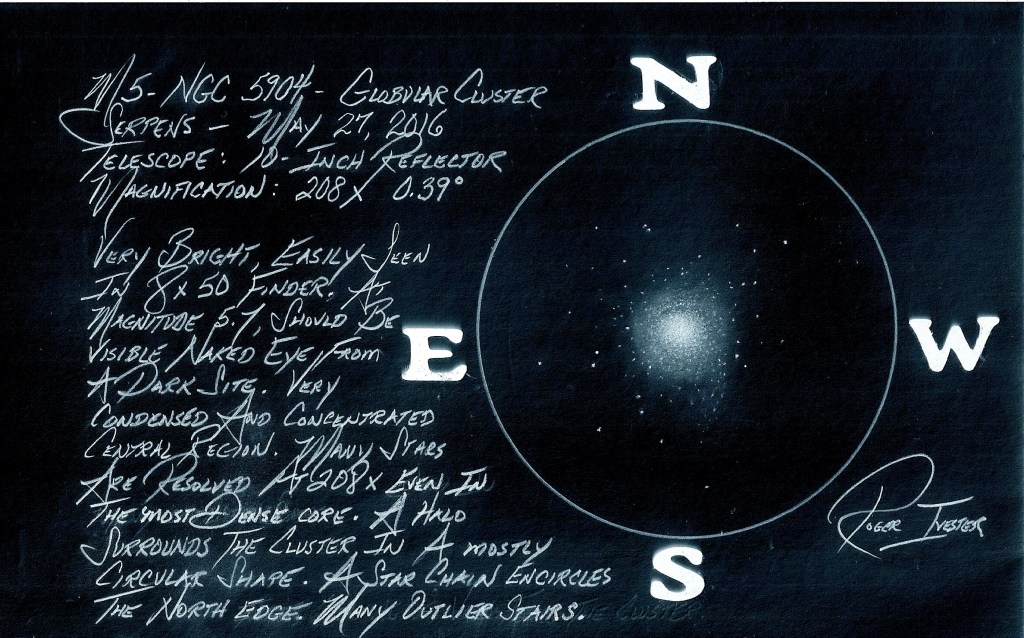 M5- NGC 5904 - Globular Cluster
Serpens - May 27, 2016
Telescope: 10-Inch Reflector
Magnification: 208x 0.39°
Very Bright, Easily Seen
In 8x50 Finder. At
Magnitude 5.7, Should Be
Visible Naked Eye From
A Dark Site. Very
Condensed And Concentrated
Central Region. Many Stars
Are Resolved At 208x Even In
The most Dense core. A Halo
Surrounds The Cluster In A mostly
Circular Shape. A Star Chain Encircles
The North Edge. Many Outlier Stairs.
N
E
W
S
Roger Ivester